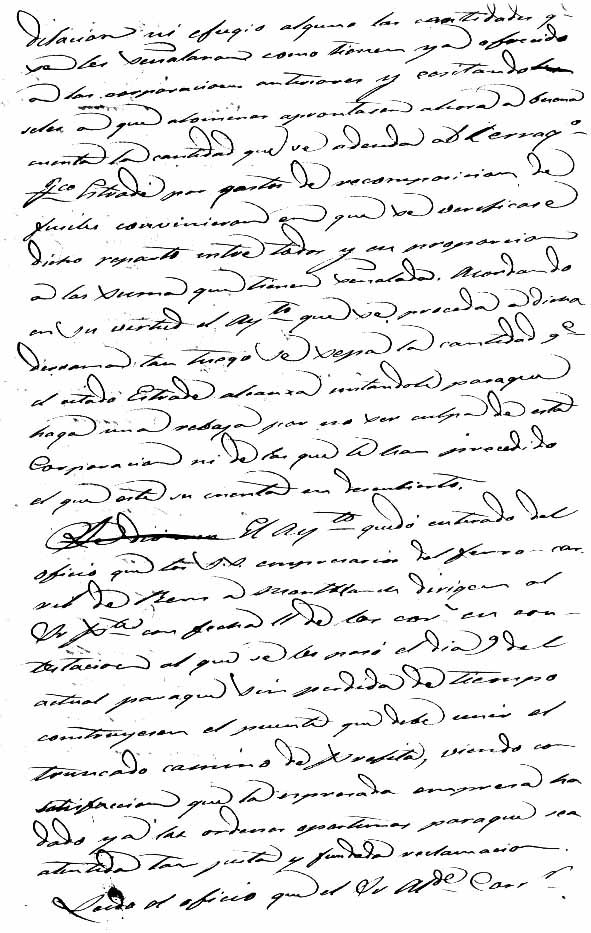 dilacion ni efugio alguno las cantidades q.e
se les señalaran como tienen ya ofrecido
a las corporaciones anteriores y
a que alomenos aprontasen ahora a buena
cuenta la cantidad que se adeuda al
Fco Estrade por gastos de recomposicion de
fusiles convinieron en que se verificase
dicho reparto entre todos y en proporcion
a las suma que tienen señalada. Acordando
en su virtud el Ayto que se proceda a dicha
derrama tan luego se sepa la cantidad q.e
el citado Estrade alcanza invitandole paraque
haga una rebaja por no ser culpa de esta
Corporacion ni de las que le han precedido
el que esté su cuenta en descubierto.
El Ayto quedó enterado del
oficio que los S.S. empresarios del ferro-car-
ril de Reus a Montblanch dirigen al
Sr Pte con fecha 11 de los cor.s en con-
testacion al que se les pasó el dia 9 del
actual paraque sin perdida de tiempo
construyesen el puente que debe unir el
truncado camino de , viendo co
satisfaccion que la espresada empresa ha
dado ya las ordenes oportunas paraque sea
atendida tan justa y fundada reclamacion.
Leido el oficio que el Sr Alde Corr.r